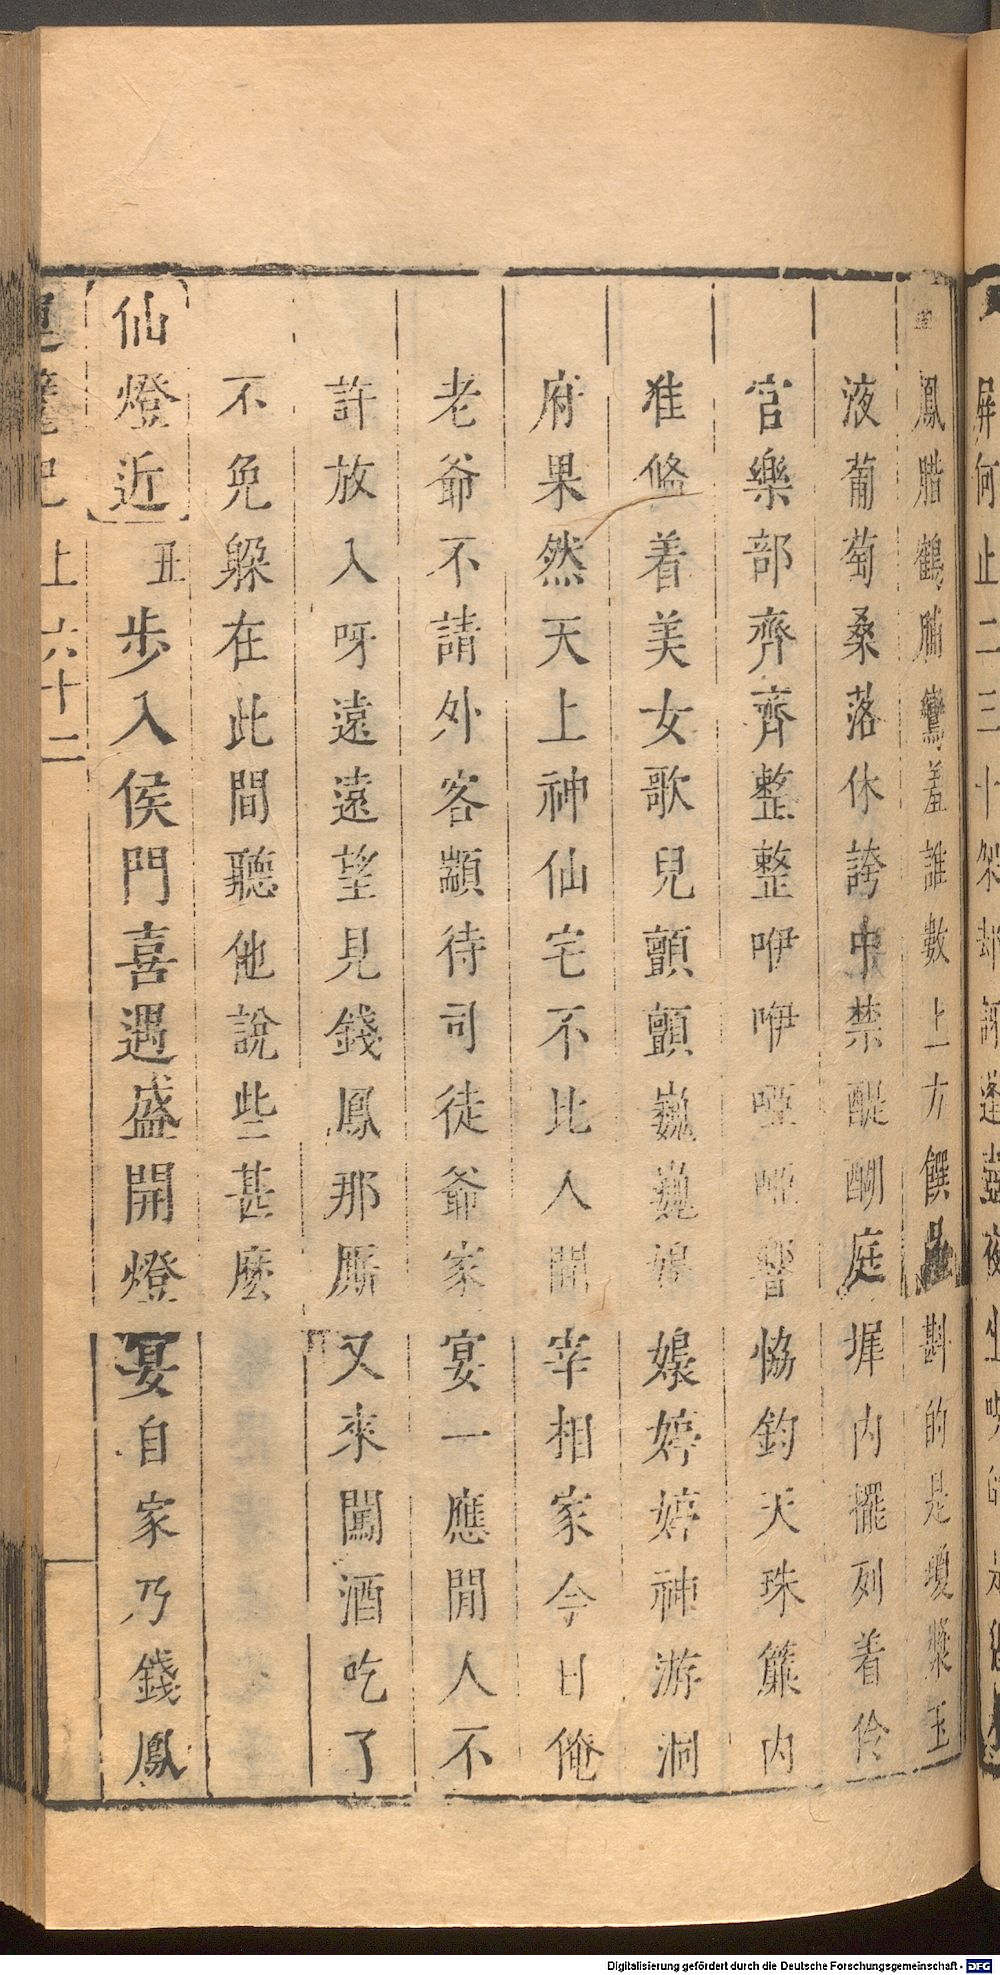 屏何止二三十架却
鳳腊鶴脯鸞羞誰數上方饌斟的是瓊漿玉
液葡萄桑落休誇中禁醍醐庭墀内擺列着伶
官樂部齊齊整整咿咿啞啞響恊鈞天珠簾内
准俻着美女歌兒顫顫巍巍嬝嬝婷婷神游洞
府果然天上神仙宅不比人間宰相家今日俺
老爺不請外客顓待司徒爺家宴一應閒人不
許放入呀遠遠望見錢鳳那厮又來闖酒吃了
不免躲在此間聽他說些甚麽
仙燈近 丑 步入侯門喜遇盛開燈宴自家乃錢鳳
上 六十二
Digitalisierung gefördert durch die Deutsche Forschungsgemeinschaft - DFG